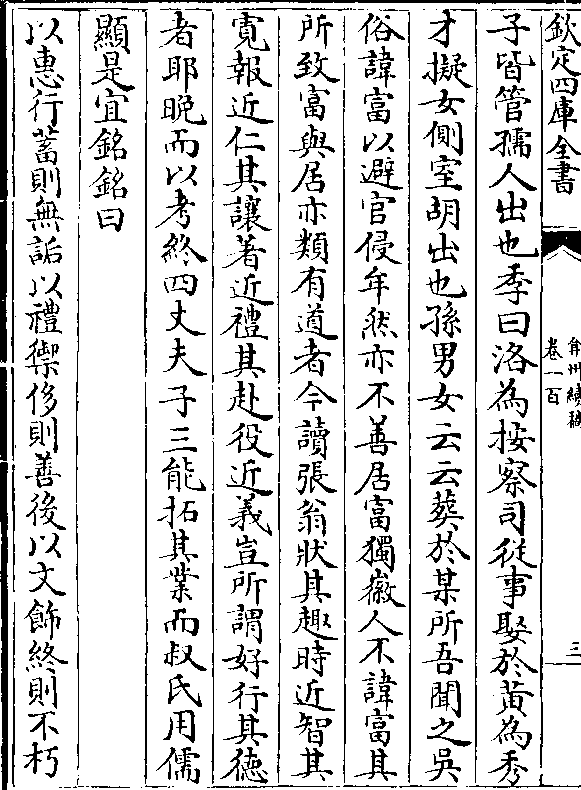 欽定四庫全書
弇州續稿
卷一百
三
子皆管孺人出也季曰洛為按察司從事娶於黃為秀
才擬女側室胡出也孫男女云云葬於某所吾聞之吳
俗諱富以避官侵年然亦不善居富獨徽人不諱富其
所致富與居亦類有道者今讀張翁狀其趣時近智其
寛報近仁其讓著近禮其赴役近義豈所謂好行其德
者耶晩而以考終四丈夫子三能拓其業而叔氏用儒
顯是宜銘銘曰
以惠行蓄則無詬以禮禦侈則善後以文飾終則不朽